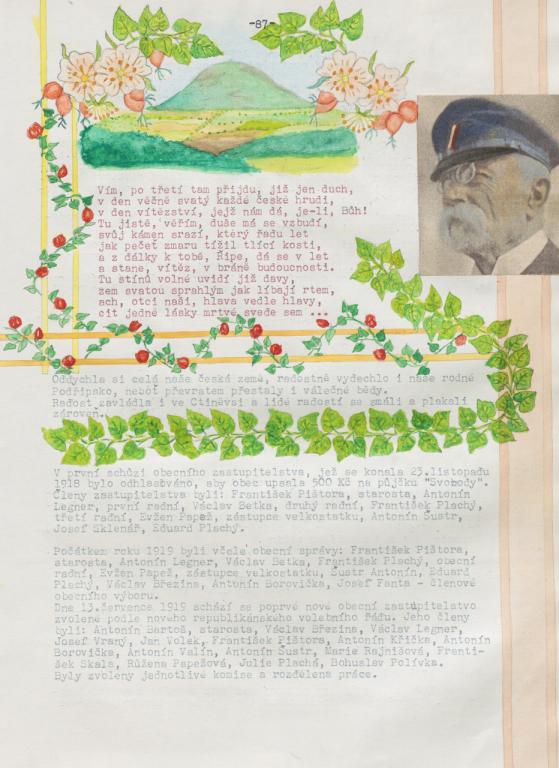 -87-
Vím, po třetí tam přijdu, již jen duch,
v den věčně svatý každé české hrudi,
v den vítězství, jejž nám dá, je-li, Bůh!
Tu jistě, věřím, duše má se vzbudí,
svůj kámen srazí, který řadu let
jak pečet zmaru tížil tlící kosti,
a z dálky k tobě, Řípe, dá se v let
a stane, vítěz, v bráně budoucnosti.
Tu stínů volné uvidí již davy,
zem svatou sprahlým jak líbají rtem,
ach, otci naši, hlava vedle hlavy,
cit jedné lásky mrtvé svede sem ...
Oddychla si celá naše česká země, radostně vydechlo i naše rodné
Podřipsko, neboť převratem přestaly i válečné bědy.
Radost zavládla i ve Ctiněvsi a lidé radostí se smáli a plakali
zároveň.
V první schůzi obecního zastupitelstva, jež se konala 23.listopadu
1918 bylo odhlasováno, aby obec upsala 500 Kč na půjčku "Svobody".
Členy zastupitelstva byli: František Pištora, starosta, Antonín
Legner, první radní, Václav Betka, druhý radní, František Plachý,
třetí radní, Evžen Papež, zástupce velkostatku, Antonín Šustr,
Josef Sklenář, Eduard Plachý.
Počátkem roku 1919 byli včele obecní správy: František Pištora,
starosta, Antonín Legner, Václav Betka, František Plachý, obecní
radní, Evžen Papež, zástupce velkostatku, Šustr Antonín, Eduard
Plachý, Václav Březina, Antonín Borovička, Josef Fanta - členové
obecního výboru.
Dne 13.července 1919 schází se poprvé nové obecní zastupitelstvo
zvolené podle nového republikánského volebního řádu. Jeho členy
byli: Antonín Bartoš, starosta, Václav Březina, Václav Legner,
Josef Vraný, Jan Volek, František Pištora, Antonín Křička, Antonín
Borovička, Antonín Valín, Antonín Šustr, Marie Rajnišová, Franti-
šek Skala, Růžena Papežová, Julie Plachá, Bohuslav Polívka.
Byly zvoleny jednotlivé komise a rozdělena práce.